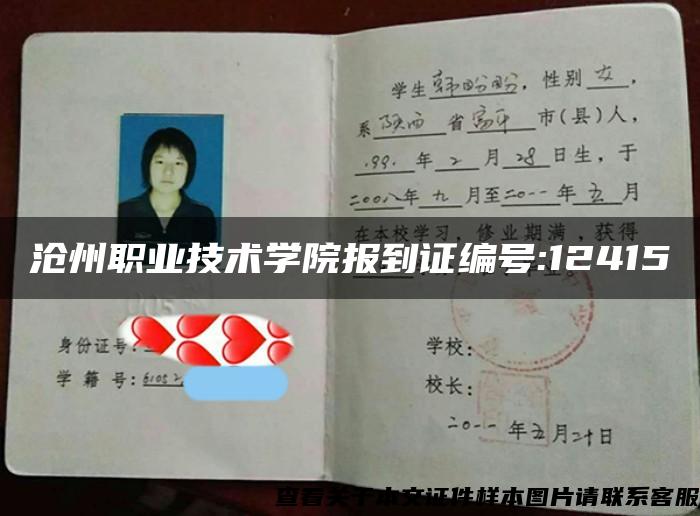 学生韩盼盼，性别 女，
系 陕西 省富平 市(县)人，
1991年 2 月 28日生，于
二00八年 九 月至二0一一年 五 月
在本校学习，修业期满，获得
沧州职业技术学院报到证编号:12415
身份证号:
学 籍 号:6105
学校:
校长:
二0一一年五月二十日
查看关于本文证件样本图片请联系客服